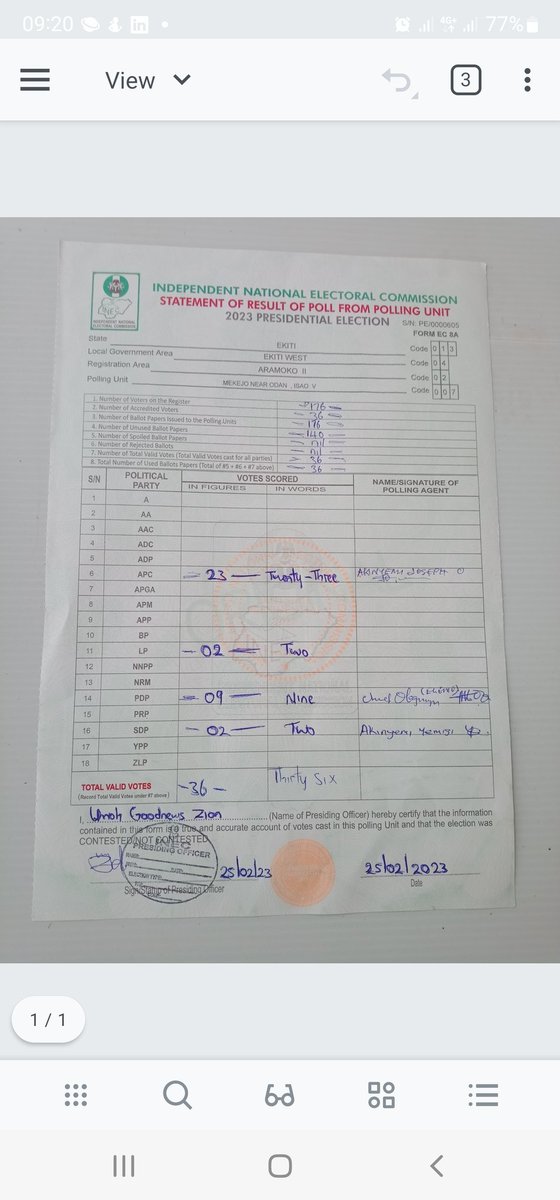 09:20 4G+ 77%
View 3
INEC
INDEPENDENT NATIONAL ELECTORAL COMMISSION
INDEPENDENT NATIONAL ELECTORAL COMMISSION
STATEMENT OF RESULT OF POLL FROM POLLING UNIT
2023 PRESIDENTIAL ELECTION S/N: PE/0000605
FORM EC 8A
State EKITI Code 0 1 3
Local Government Area EKITI WEST Code 0 4
Registration Area ARAMOKO II Code 0 2
Polling Unit MEKEJO NEAR ODAN , ISAO V Code 0 0 7
1. Number of Voters on the Register
2. Number of Accredited Voters 36
3. Number of Ballot Papers Issued to the Polling Units 176
4. Number of Unused Ballot Papers 140
5. Number of Spoiled Ballot Papers nil
6. Number of Rejected Ballots nil
7. Number of Total Valid Votes (Total Valid Votes cast for all parties) 36
8. Total Number of Used Ballots Papers (Total of #5 + #6 + #7 above) 36
S/N POLITICAL PARTY VOTES SCORED NAME/SIGNATURE OF POLLING AGENT
IN FIGURES IN WORDS
1 A
2 AA
3 AAC
4 ADC
5 ADP
6 APC - 23 - Twenty-Three AKINYEMI JOSEPH O
7 APGA
8 APM
9 APP
10 BP
11 LP - 02 - Two
12 NNPP
13 NRM
14 PDP - 09 - Nine
15 PRP
16 SDP - 02 - Two Akinyemi Yemisi
17 YPP
18 ZLP
TOTAL VALID VOTES -36- Thirty Six
(Record Total Valid Votes under #7 above)
I, Umoh Goodnews Zion (Name of Presiding Officer) hereby certify that the information
contained in this form is a true and accurate account of votes cast in this polling Unit and that the election was
CONTESTED/NOT CONTESTED
INEC
PRESIDING OFFICER
NAME:
DATE:
25/02/23 25/02/2023
Sign/Stamp of Presiding Officer Date
1 / 1